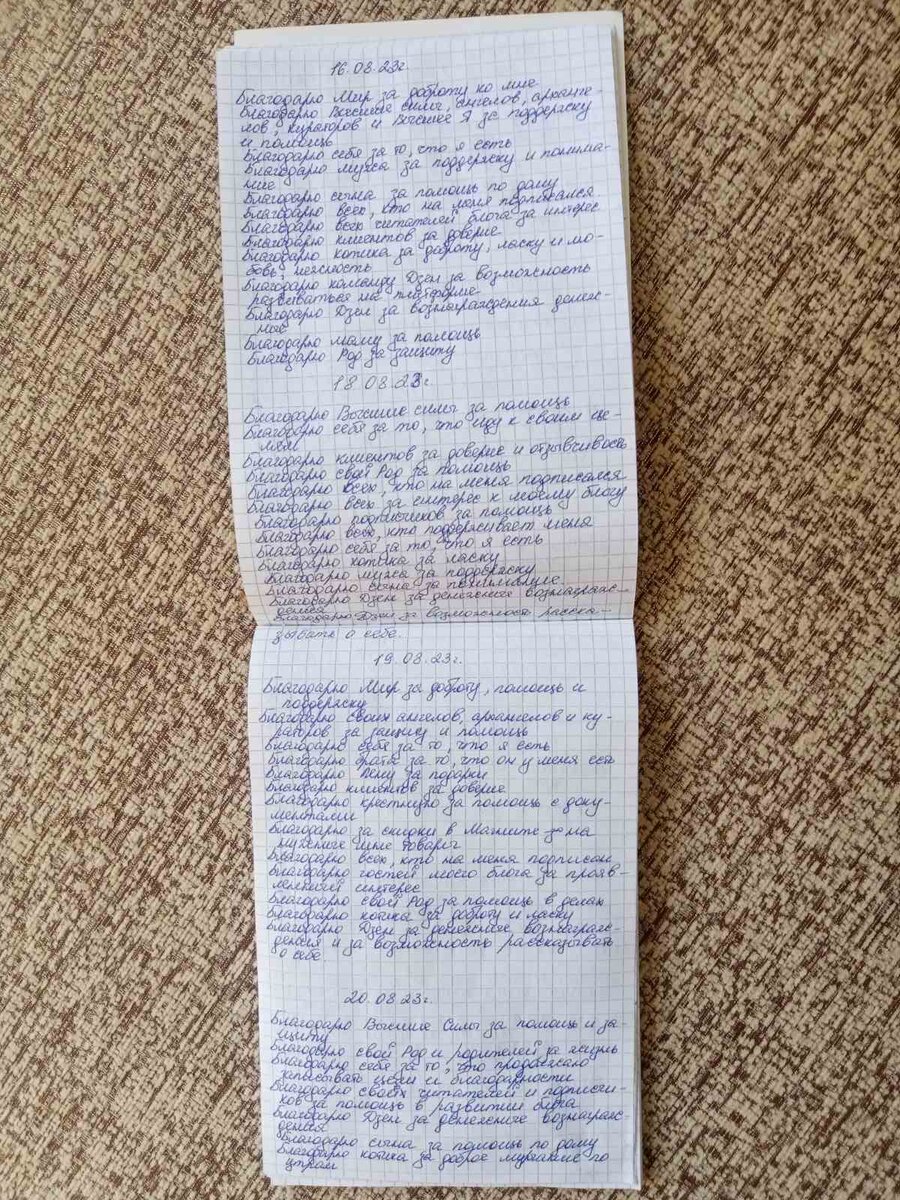 16.08.23г.
Благодарю Мир за доброту ко мне
Благодарю Высшие силы, ангелов, арханге-
лов, кураторов и Высшее Я за поддержку
и помощь
Благодарю себя за то, что я есть
Благодарю мужа за поддержку и понима-
ние
Благодарю сына за помощь по дому
Благодарю всех, кто на меня подписался
Благодарю всех читателей блога за интерес
Благодарю клиентов за доверие
Благодарю котика за доброту, ласку и лю-
бовь, нежность
Благодарю команду Дзен за возможность
развиваться на платформе
Благодарю Дзен за вознаграждения денеж-
ные
Благодарю маму за помощь
Благодарю Род за защиту
18.08.23г.
Благодарю Высшие силы за помощь
Благодарю себя за то, что иду к своим це-
лям
Благодарю клиентов за доверие и отзывчивость
Благодарю свой Род за помощь
Благодарю всех, кто на меня подписался
Благодарю всех за интерес к моему блогу
Благодарю подписчиков за помощь
Благодарю всех, кто поддерживает меня
Благодарю себя за то, что я есть
Благодарю котика за ласку
Благодарю мужа за поддержку
Благодарю сына за понимание
Благодарю Дзен за денежные вознаграж-
дения
Благодарю Дзен за возможность расска-
зывать о себе.
19.08.23г.
Благодарю Мир за доброту, помощь и
поддержку
Благодарю своих ангелов, архангелов и ку-
раторов за защиту и помощь
Благодарю себя за то, что я есть
Благодарю брата за то, что он у меня есть
Благодарю за подарки
Благодарю клиентов за доверие
Благодарю крестную за помощь с доку-
ментами
Благодарю за скидки в Магните на
нужные мне товары
Благодарю всех, кто на меня подписан
Благодарю гостей моего блога за прояв-
ленный интерес
Благодарю свой Род за помощь в делах
Благодарю котика за доброту и ласку
Благодарю Дзен за денежные вознаграж-
дения и за возможность рассказывать
о себе
20.08.23г.
Благодарю Высшие Силы за помощь и за-
щиту
Благодарю свой Род и родителей за жизнь
Благодарю себя за то, что продолжаю
записывать цели и благодарности
Благодарю своих читателей и подписчи-
ков за помощь в развитии блога
Благодарю Дзен за денежные вознаграж-
дения
Благодарю сына за помощь по дому
Благодарю котика за доброе мурчание по
утрам